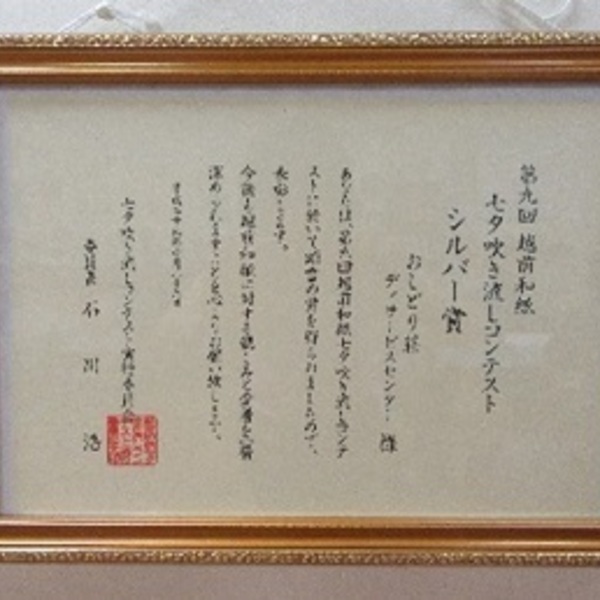 第九回 越前和紙
七夕吹き流しコンテスト
シルバー賞
おしどり荘
デイサービスセンター 様
あなたは、第九回越前和紙七夕吹き流しコンテ
ストに於いて頭書の賞を得られましたので、
表彰します。
今後も越前和紙に対する親しみと愛着を
深められますことを心よりお願い致します。
平成
七夕吹き流しコンテスト実行委員会
委員長 石川 浩